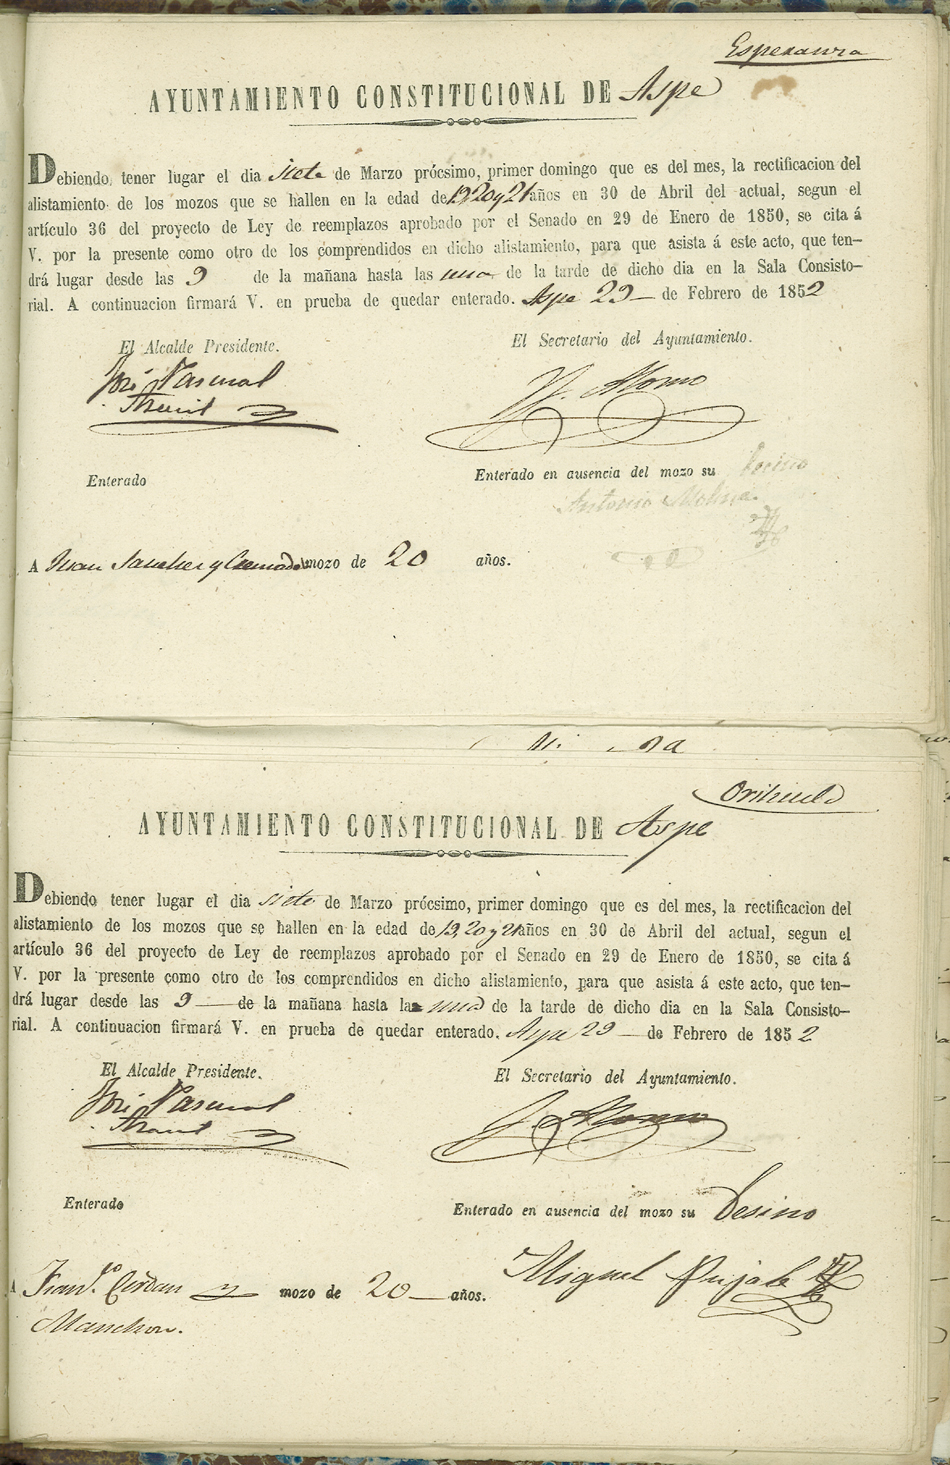 Esperanza
AYUNTAMIENTO CONSTITUCIONAL DE Aspe
Debiendo tener lugar el dia siete de Marzo prócsimo, primer domingo que es del mes, la rectificacion del
alistamiento de los mozos que se hallen en la edad de 19, 20 y 21 años en 30 de Abril del actual, segun el
artículo 36 del proyecto de Ley de reemplazos aprobado por el Senado en 29 de Enero de 1850, se cita á
V. por la presente como otro de los comprendidos en dicho alistamiento, para que asista á este acto, que ten–
drá lugar desde las 9 de la mañana hasta las una de la tarde de dicho dia en la Sala Consisto–
rial. A continuacion firmará V. en prueba de quedar enterado. Aspe 29 de Febrero de 1852
El Alcalde Presidente. El Secretario del Ayuntamiento.
José Pascual Alonso
Enterado Enterado en ausencia del mozo su Vecino
Antonio Molina
A Juan Sanchez y mozo de 20 años.
Orihuela
AYUNTAMIENTO CONSTITUCIONAL DE Aspe
Debiendo tener lugar el dia siete de Marzo prócsimo, primer domingo que es del mes, la rectificacion del
alistamiento de los mozos que se hallen en la edad de 19, 20 y 21 años en 30 de Abril del actual, segun el
artículo 36 del proyecto de Ley de reemplazos aprobado por el Senado en 29 de Enero de 1850, se cita á
V. por la presente como otro de los comprendidos en dicho alistamiento, para que asista á este acto, que ten–
drá lugar desde las 9 de la mañana hasta las una de la tarde de dicho dia en la Sala Consisto–
rial. A continuacion firmará V. en prueba de quedar enterado. Aspe 29 de Febrero de 1852
El Alcalde Presidente. El Secretario del Ayuntamiento.
José Pascual Alonso
Enterado Enterado en ausencia del mozo su Vesino
Miguel Pujalte
A Franco. Cerdan mozo de 20 años.
Manchon.